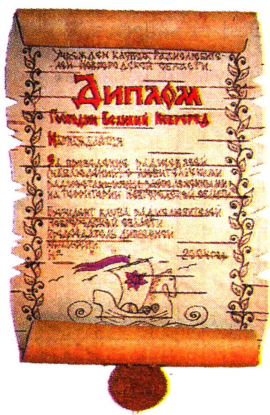 Учрежден клубом радиолюбите-
лей Новгородской области.
Диплом
Господин Великий Новгород
Награждается
За проведение радиосвязей
наблюдений с любительскими
радиостанциями, расположенными
на территории Новгородской области
Президент клуба радиолюбителей
Новгородской области
Председатель дипломной
комиссии
№